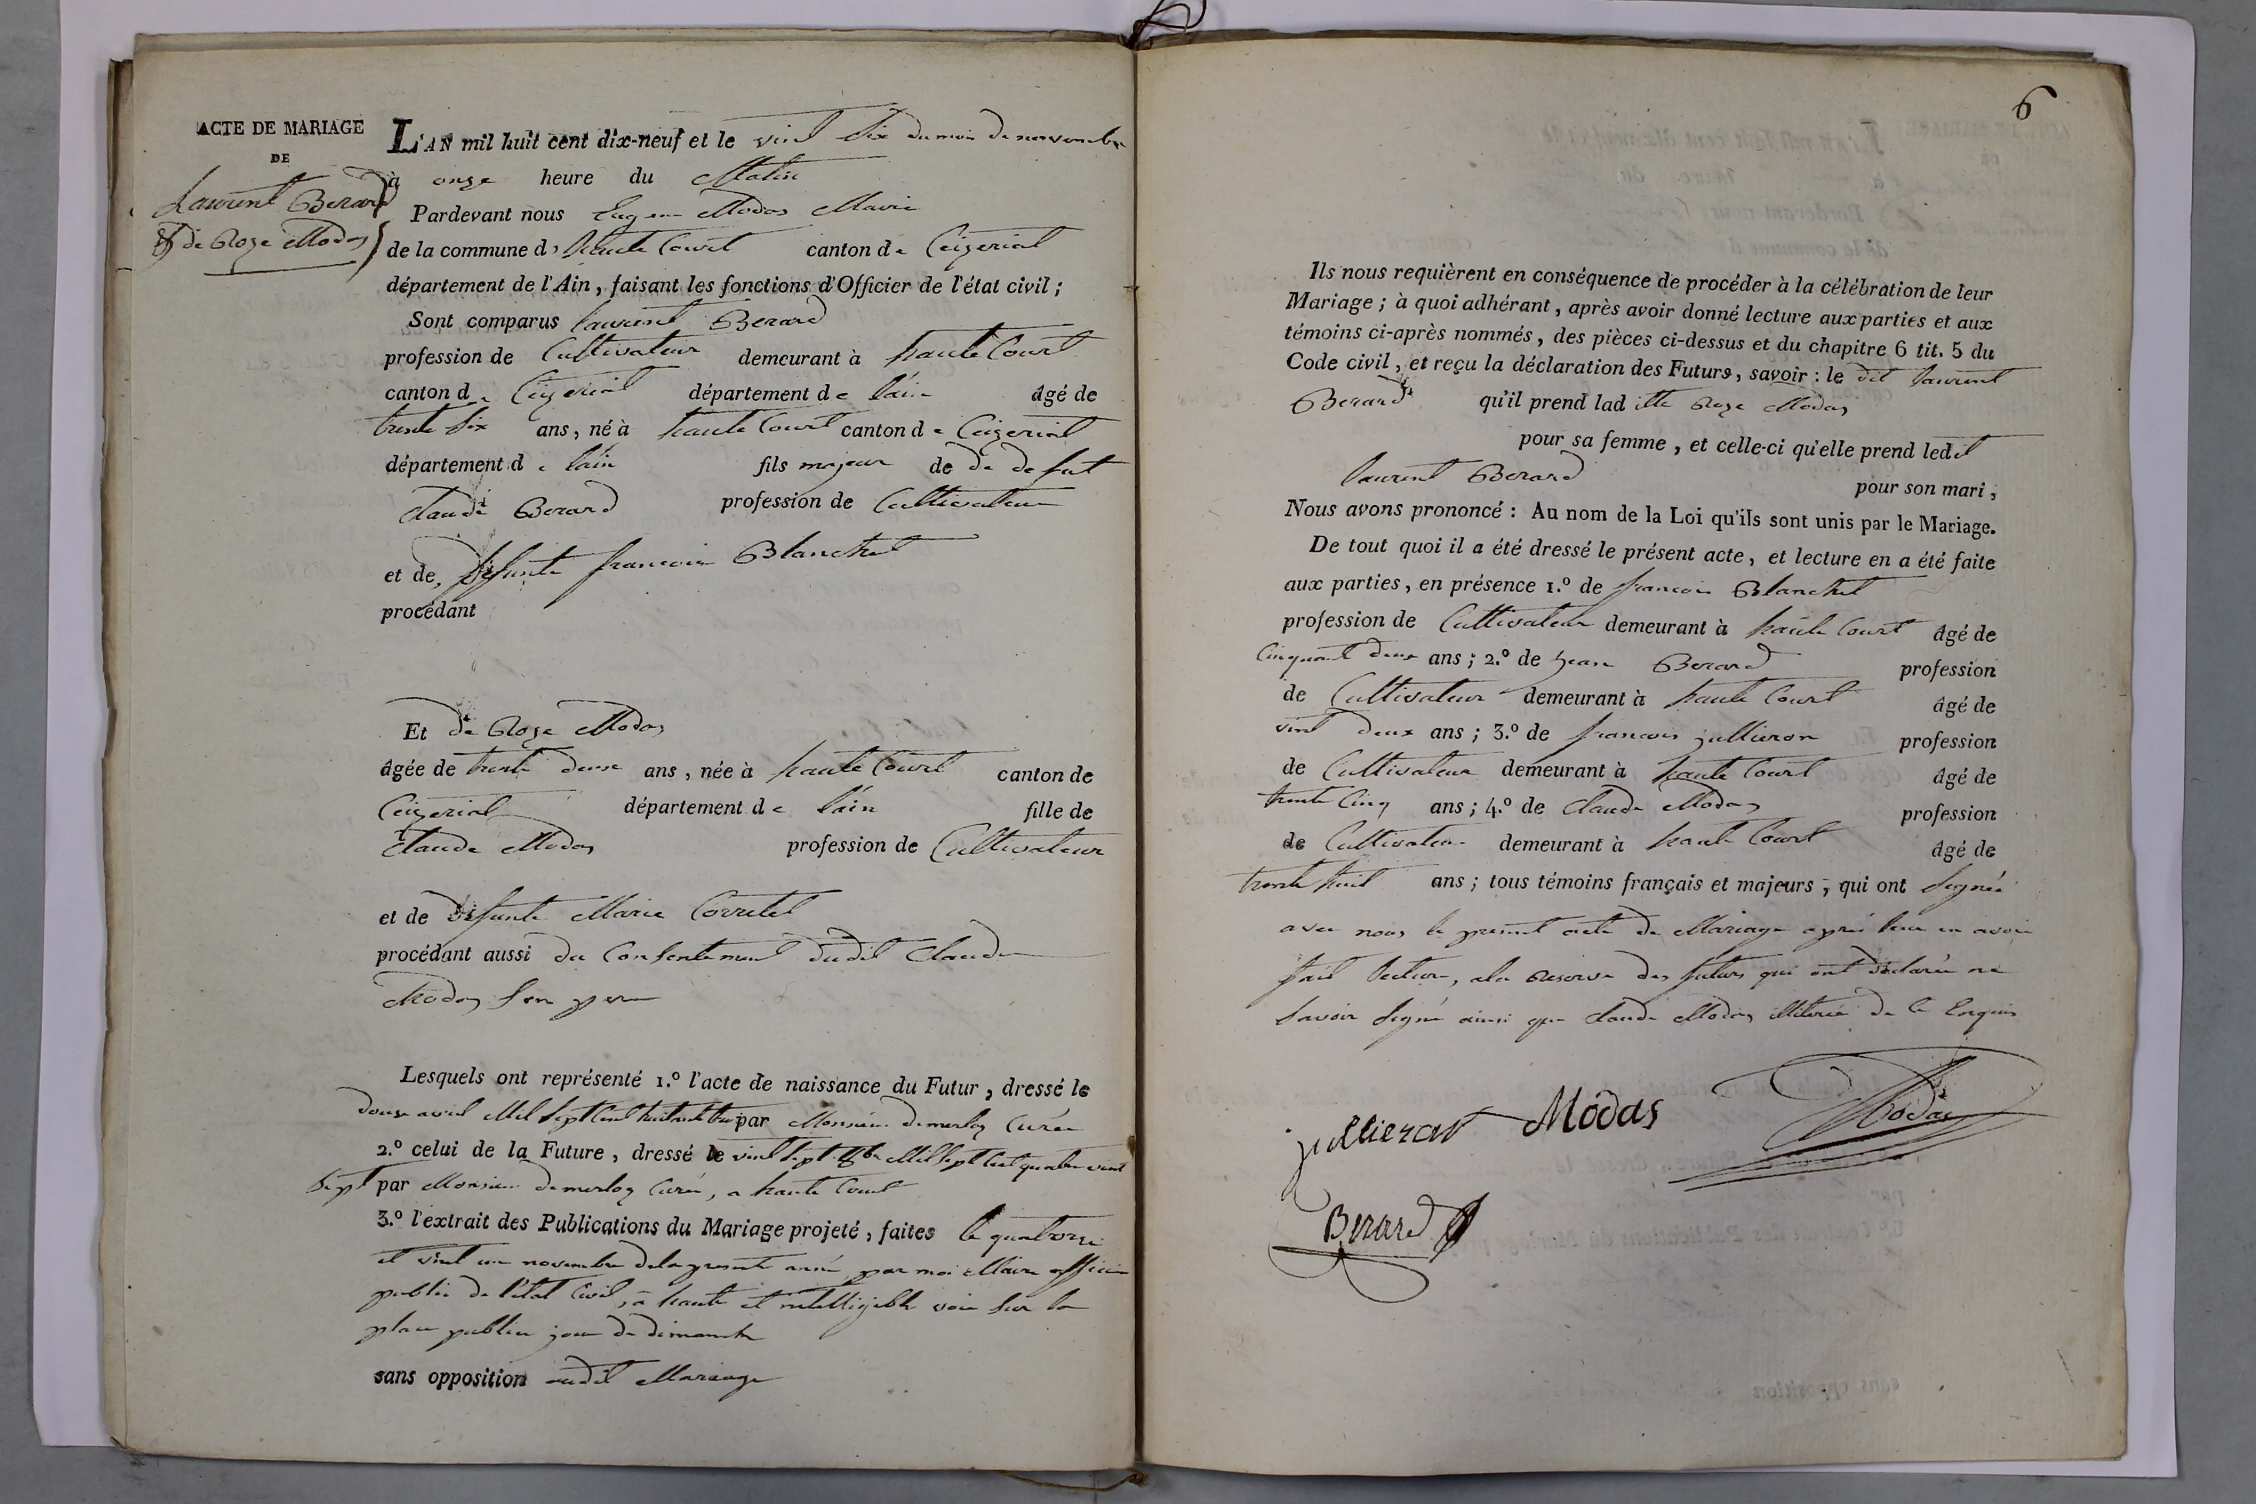 ACTE DE MARIAGE
DE
Laurent Berard
& de Roze Modas
L'AN mil huit cent dix-neuf et le vint six du mois de novembre
à onze heure du Matin
Pardevant nous Eugene Modas Maire
de la commune de haute Court canton de Ceizeriat
département de l'Ain, faisant les fonctions d'Officier de l'état civil;
Sont comparus laurent Berard
profession de Cultivateur demeurant à haute Court
canton de Ceizeriat département de l'ain âgé de
trente six ans, né à haute Court canton de Ceizeriat
département de l'ain fils majeur de de defunt
Claude Berard profession de Cultivateur
et de defunte francoise Blanchet
procédant
Et de Roze Modas
âgée de trente deux ans, née à haute Court canton de
Ceizeriat département de l'ain fille de
Claude Modas profession de Cultivateur
et de defunte Marie Corretet
procédant aussi du Consentement dudit Claude
Modas son pere
Lesquels ont représenté 1.º l'acte de naissance du Futur, dressé le
douze avril Mil sept Cent huitante trois par Monsieur demerloz Curée
2.º celui de la Future, dressé le vint sept 8bre Mil sept Cent quatre vint
sept par Monsieur demerloz Curée, a haute Court
3.º l'extrait des Publications du Mariage projeté, faites le quatorze
et vint un novembre dela presente année par moi Maire officier
public de l'état Civil, a haute et intelligible voix sur la
place public jour de dimanche
sans opposition audit Mariage
6
Ils nous requièrent en conséquence de procéder à la célébration de leur
Mariage; à quoi adhérant, après avoir donné lecture aux parties et aux
témoins ci-après nommés, des pièces ci-dessus et du chapitre 6 tit. 5 du
Code civil, et reçu la déclaration des Futurs, savoir: le dit laurent
Berard qu'il prend laditte Roze Modas
pour sa femme, et celle-ci qu'elle prend ledit
laurent Berard pour son mari,
Nous avons prononcé: Au nom de la Loi qu'ils sont unis par le Mariage.
De tout quoi il a été dressé le présent acte, et lecture en a été faite
aux parties, en présence 1.º de francois Blanchet
profession de Cultivateur demeurant à haute Court âgé de
Cinquante deux ans; 2.º de jean Berard profession
de Cultivateur demeurant à haute Court âgé de
vint deux ans; 3.º de francois jullieron profession
de Cultivateur demeurant à haute Court âgé de
trente Cinq ans; 4.º de Claude Modas profession
de Cultivateur demeurant à haute Court âgé de
trente huit ans; tous témoins français et majeurs, qui ont signée
avec nous le present acte de Mariage après leur en avoir
fait lecture, ala reserve des futurs qui ont déclarée ne
savoir signé ainsi que Claude Modas illiterée de ce Enquis
jullieron Modas Modas
Berard